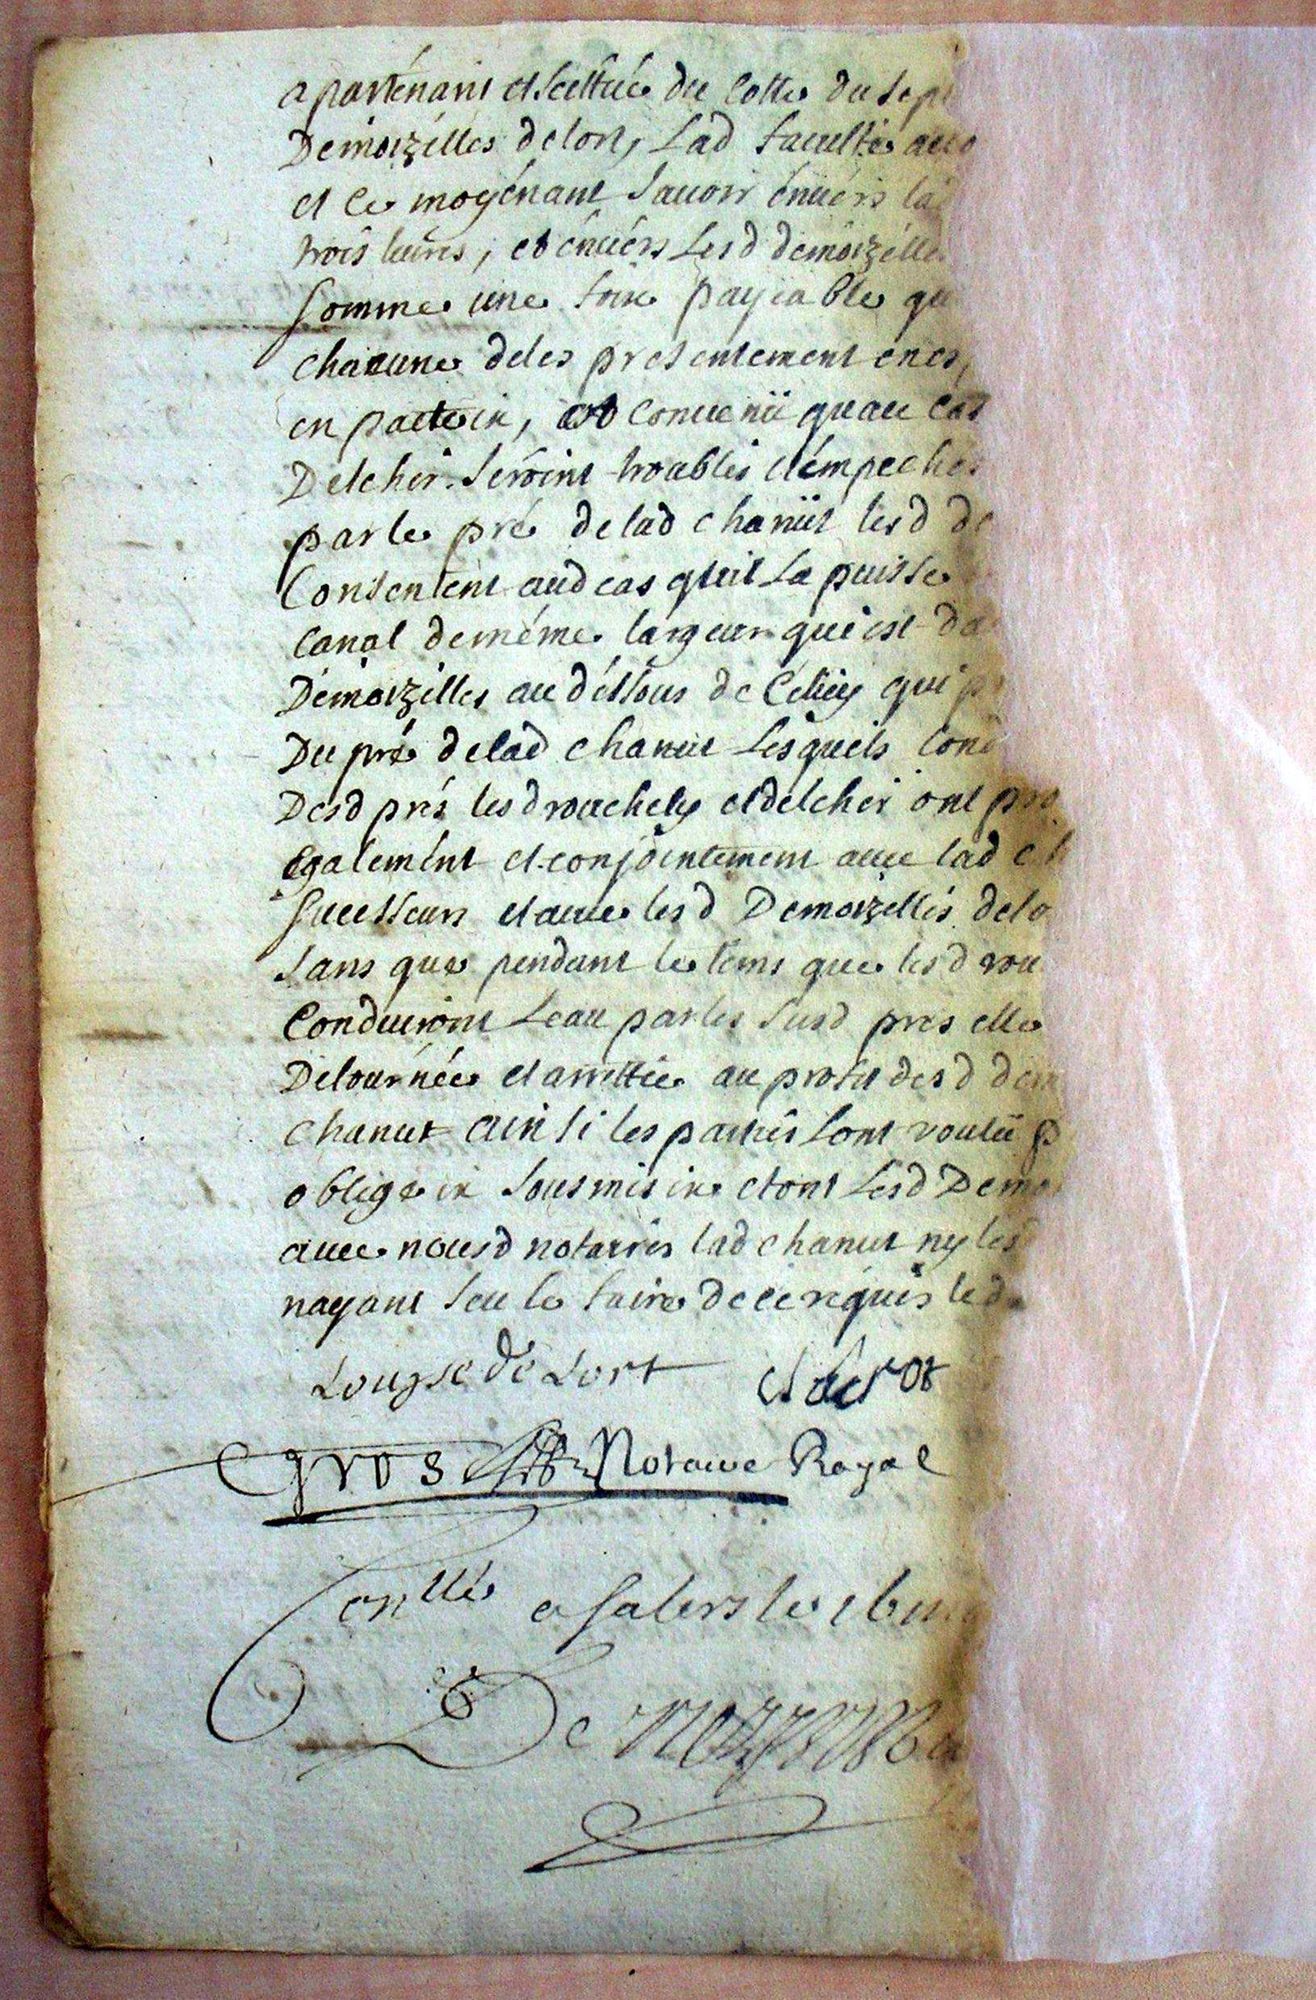 apartenant et scittuée du cotté du sept
Demoizélles delort, Lad faculté acco
et ce moyénant scavoir énvérs lad
trois livres, et énvérs Lesd démoizélles
Somme une fois payiable qu
chacune deles présentement en es
en pacte ex, et convenu quau cas
Delcher seroint troublés et émpechés
par le pré de lad chanut lesd de
Consentent aud cas quil Le puisse
Canal de méme largeur qui est da
Démoizélles au déssous de Celluy qui p
Du pré de lad chanut Lesquels Cond
Desd prés lesd rouchely et delcher ont pro
égalemént et conjointement avec lad ch
Successeurs et avec lesd Demoizéllés delo
Sans que pendant le tems que lesd rou
Conduiront Leau par les susd prés elle
Détournée et arrettée au profit desd dem
chanut ainsi les parties Lont voulü p
oblige ex sousmis ex et ont Lesd Demoi
avec nousd notaires lad chanut ny lesd
nayant sceu le faire de ce réquis led
Louyse de Lort
Gros Notaire Royal
Con^llé a Salers le
De